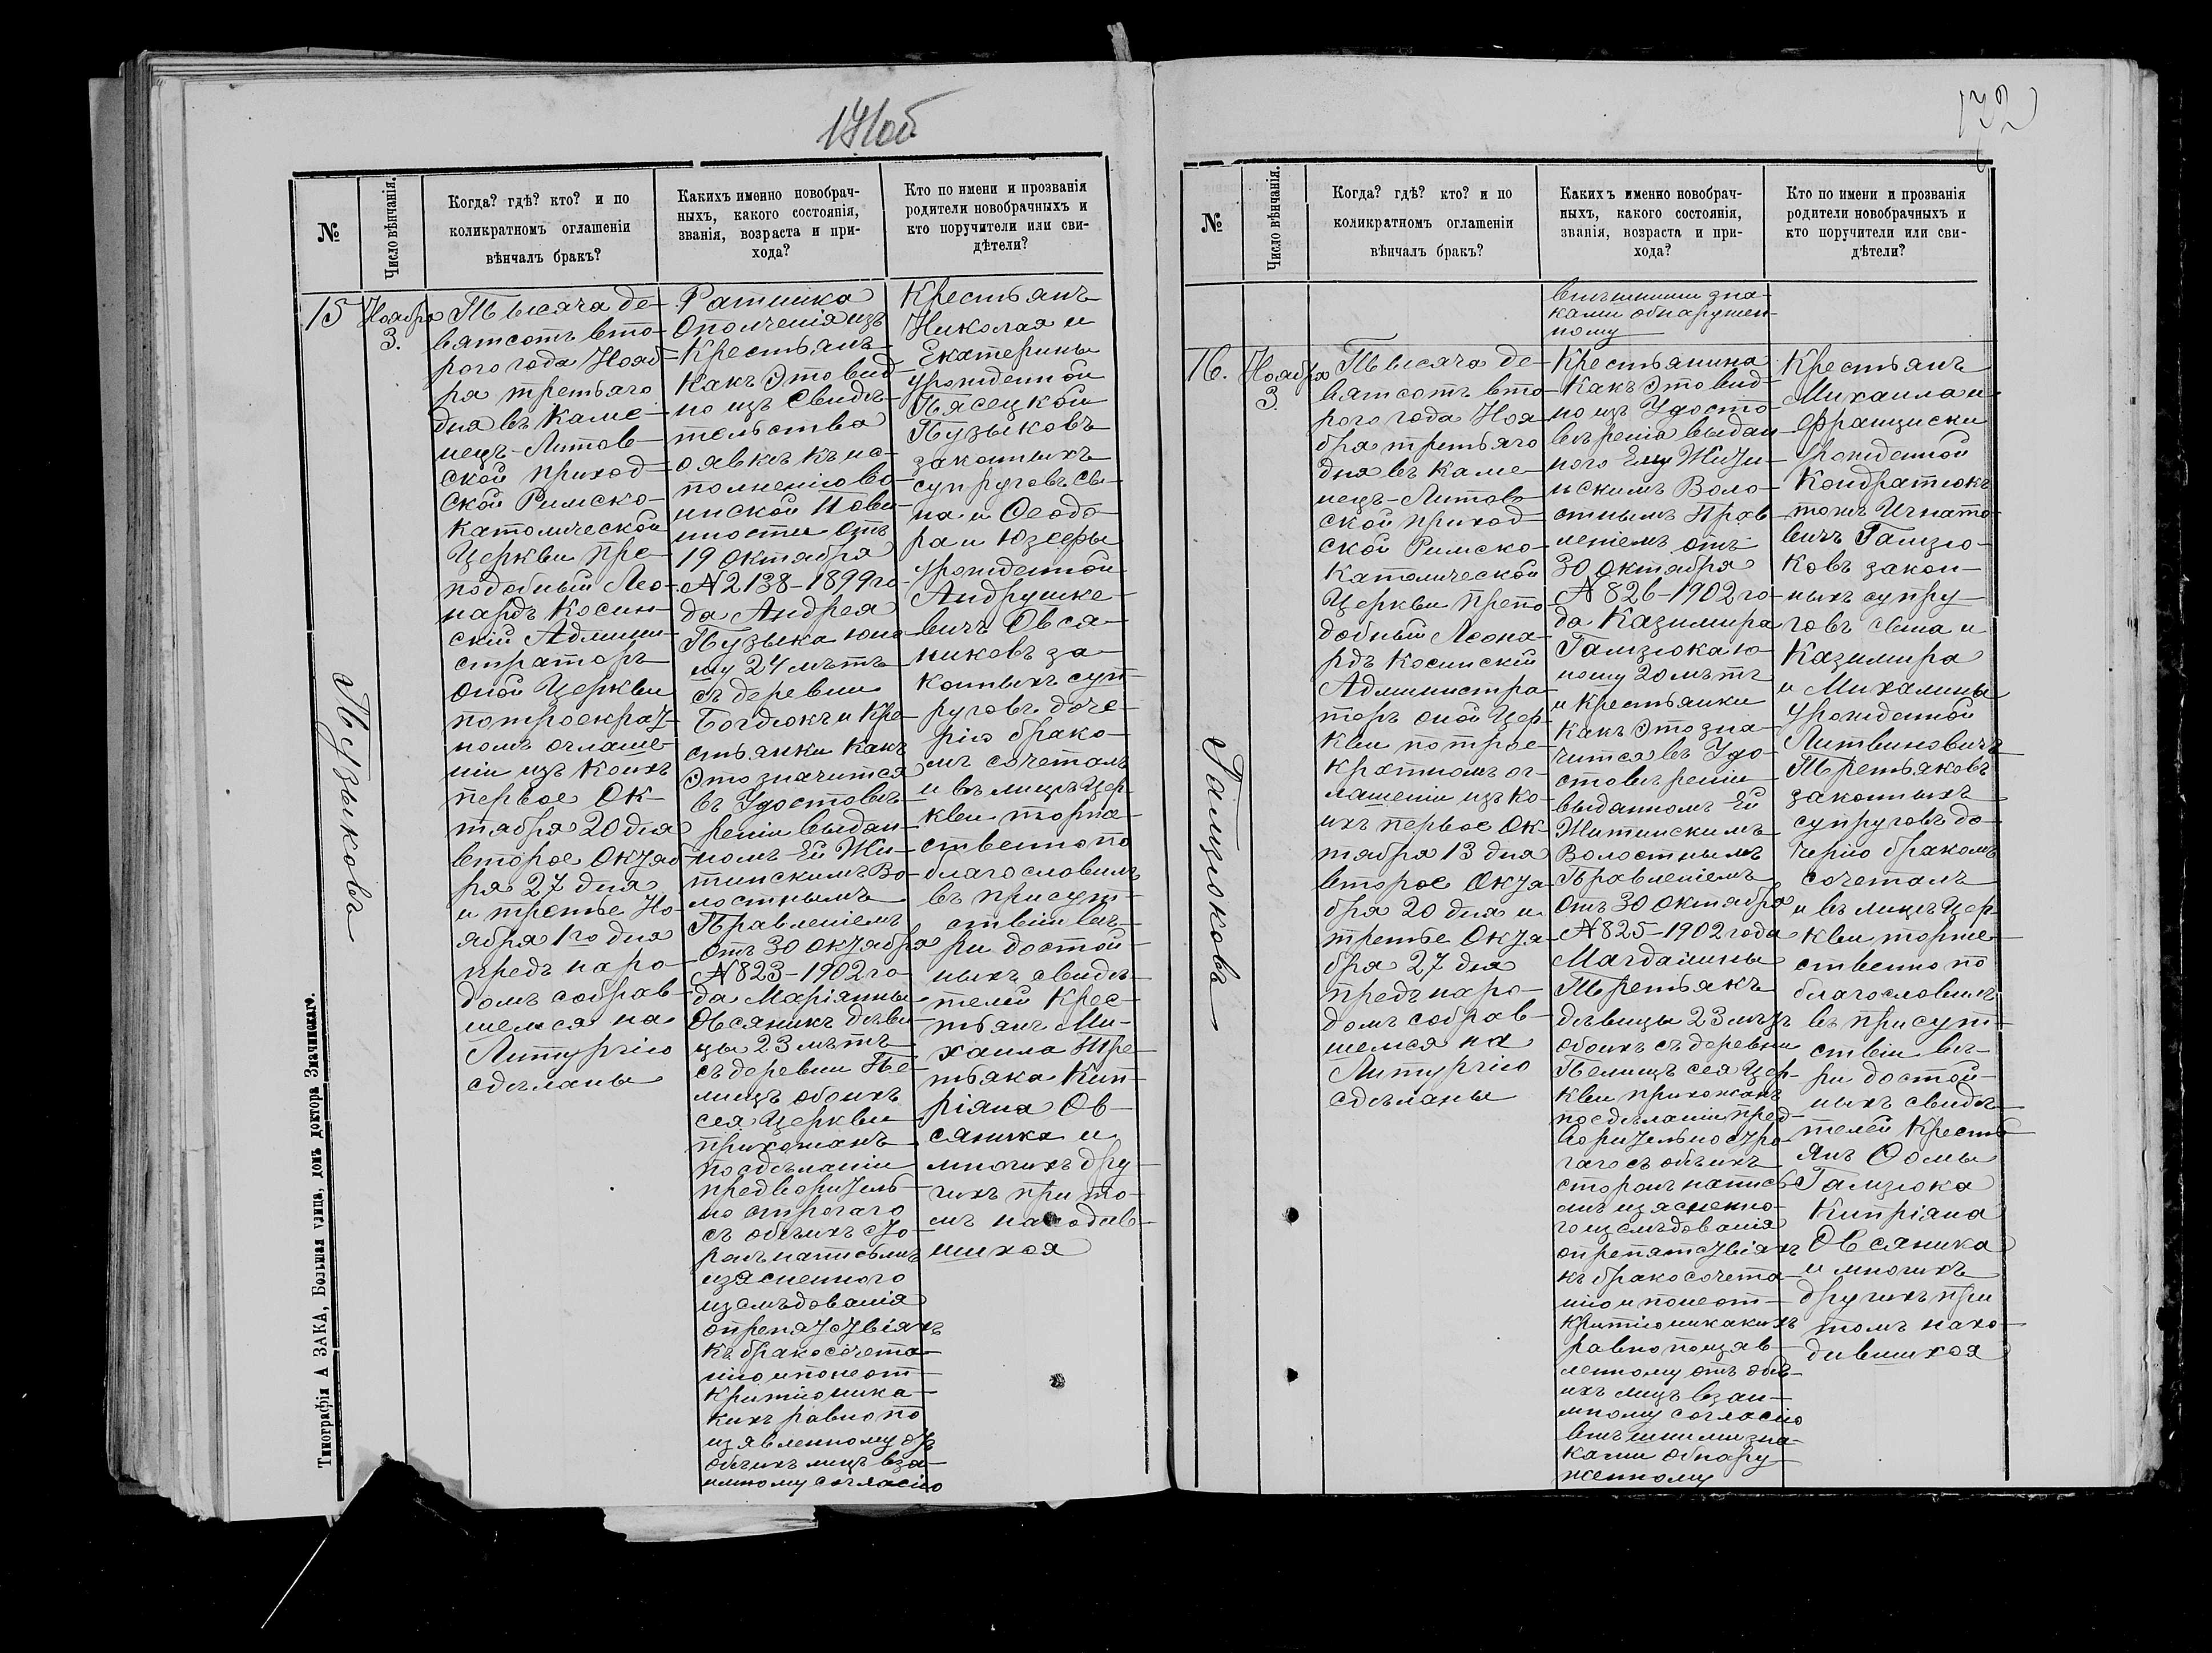 171об
№
Число вѣнчанія.
Когда? гдѣ? кто? и по
коликратномъ оглашеніи
вѣнчалъ бракъ?
Какихъ именно новобрач-
ныхъ, какого состоянія,
званія, возраста и при-
хода?
Кто по имени и прозванія
родители новобрачныхъ и
кто поручители или сви-
дѣтели?
15
Ноября
3.
Пузыковъ
Тысяча де-
вятсотъ вто-
рого года Нояб-
ря третьяго
дня въ Каме-
нецъ-Литов-
ской приход-
ской Римско-
Католической
Церкви пре-
подобный Лео-
нардъ Косин-
скій Админи-
страторъ
оной Церкви
по троекраз-
номъ оглаше-
ніи изъ коихъ
первое Ок-
тября 20 дня
второе Октяб-
ря 27 дня
и третье Но-
ября 1го дня
предъ наро-
домъ собрав-
шемся на
Литургію
сдѣланы
Ратника
Ополченія изъ
Крестьянъ
какъ это вид-
но изъ Свидѣ-
тельства
о явкѣ къ ис-
полненію во-
инской Пови-
нности отъ
19 Октября
№ 2138-1899 го-
да Андрея
Пузыка юно-
шу 24 лѣтъ
съ деревни
Богдюкъ и Кре-
стьянки какъ
это значится
въ Удостовѣ-
реніи выдан-
номъ Ей Жи-
тинскимъ Во-
лостнымъ
Правленіемъ
отъ 30 Октября
№ 823-1902 го-
да Маріянны
Овсяникъ дѣви-
цы 23 лѣтъ
съ деревни Пе-
лищъ обоихъ
сея Церкви
прихожанъ
по сдѣланіи
предворитель-
но строгаго
съ обѣихъ сто-
ронъ написьмѣ
изясненного
изслѣдованія
о препятствіяхъ
къ бракосочета-
нію и по неот-
крытію ника-
кихъ равно по
изявленному отъ
обѣихъ лицъ вза-
имному согласію
Крестьянъ
Николая и
Екатерины
урожденной
Пясецкой
Пузыковъ
законныхъ
супруговъ сы-
на и Ѳеодо-
ра и Юзефы
урожденной
Андрушке-
вичъ Овся-
никовъ за-
конныхъ суп-
руговъ доче-
рію брако-
мъ сочеталъ
и въ лицѣ Цер-
кви торже-
ственно по
благословилъ
въ присут-
ствіи вѣ-
ри достой-
ныхъ свидѣ-
телей Крес-
тьянъ Ми-
хаила Тре-
тьяка Кип-
ріяна Ов-
сяника и
многихъ дру-
гихъ при то-
мъ находив-
шихся
Типографія А ЗАКА, Большая улица, домъ доктора Значинскаго.
132
№
Число вѣнчанія.
Когда? гдѣ? кто? и по
коликратномъ оглашеніи
вѣнчалъ бракъ?
Какихъ именно новобрач-
ныхъ, какого состоянія,
званія, возраста и при-
хода?
Кто по имени и прозванія
родители новобрачныхъ и
кто поручители или сви-
дѣтели?
внѣшними зна-
ками обнаружен-
ному
16.
Ноября
3
Галзюковъ
Тысяча де-
вятсотъ вто-
рого года Ноя-
бря третьяго
дня въ Каме-
нецъ-Литов-
ской приход-
ской Римско-
Католической
Церкви препо-
добный Леона-
рдъ Косинскій
Администра-
торъ оной Цер-
кви по трое-
кратномъ ог-
лашеніи изъ ко-
ихъ первое Ок-
тября 13 дня
второе Октя-
бря 20 дня и
третье Октя-
бря 27 дня
предъ наро-
домъ собрав-
шемся на
Литургію
сдѣланы
Крестьянина
какъ это вид-
но изъ Удосто-
вѣренія выдан-
ного Ему Жити-
нскимъ Воло-
стнымъ Прав-
леніемъ отъ
30 Октября
№ 826-1902 го-
да Казимира
Галзюка ю-
ношу 20 лѣтъ
и Крестьянки
какъ это зна-
чится въ Удо-
стовѣреніи
выданномъ Ей
Житинскимъ
Волостнымъ
Правленіемъ
отъ 30 Октября
№ 825-1902 года
Магдалины
Третьякъ
дѣвицы 23 лѣтъ
обоихъ съ деревни
Пелищъ сея Цер-
кви прихожанъ
по сдѣланіи пред-
ворительно стро-
гаго съ обѣихъ
сторонъ напись-
мѣ изясненно-
го изслѣдованія
о препятствіяхъ
къ бракосочета-
нію и по неот-
крытію никакихъ
равно по изяв-
ленному отъ обѣ-
ихъ лицъ взаи-
мному согласію
внѣшними зна-
ками обнару-
женному
Крестьянъ
Михаила и
Франциски
урожденной
Кондратюкъ
тожъ Игнато-
вичъ Галзю-
ковъ закон-
ныхъ супру-
говъ сына и
Казимира
и Михалины
урожденной
Литвиновичъ
Третьяковъ
законныхъ
супруговъ до-
черію бракомъ
сочеталъ
и въ лицѣ Цер-
кви торже-
ственно по
благословилъ
въ присут-
ствіи вѣ-
ри достой-
ныхъ свидѣ-
телей Кресть-
янъ Ѳомы
Галзюка
Кипріяна
Овсяника
и многихъ
другихъ при
томъ нахо-
дившихся